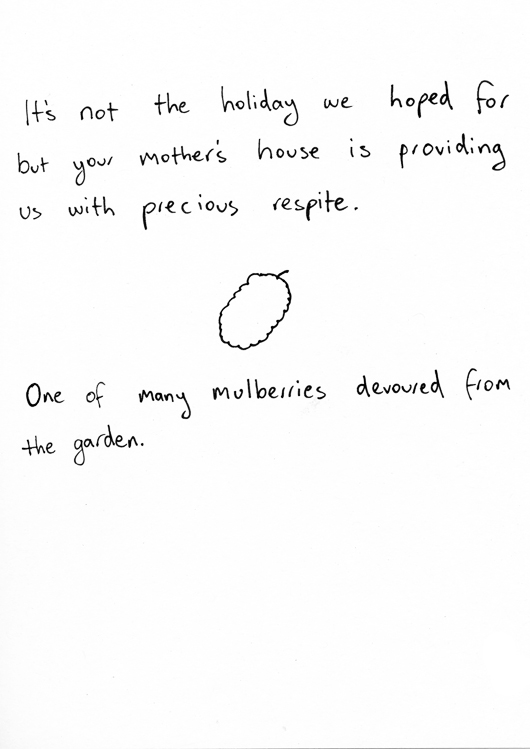 It's not the holiday we hoped for
but your mother's house is providing
us with precious respite.
One of many mulberries devoured from
the garden.